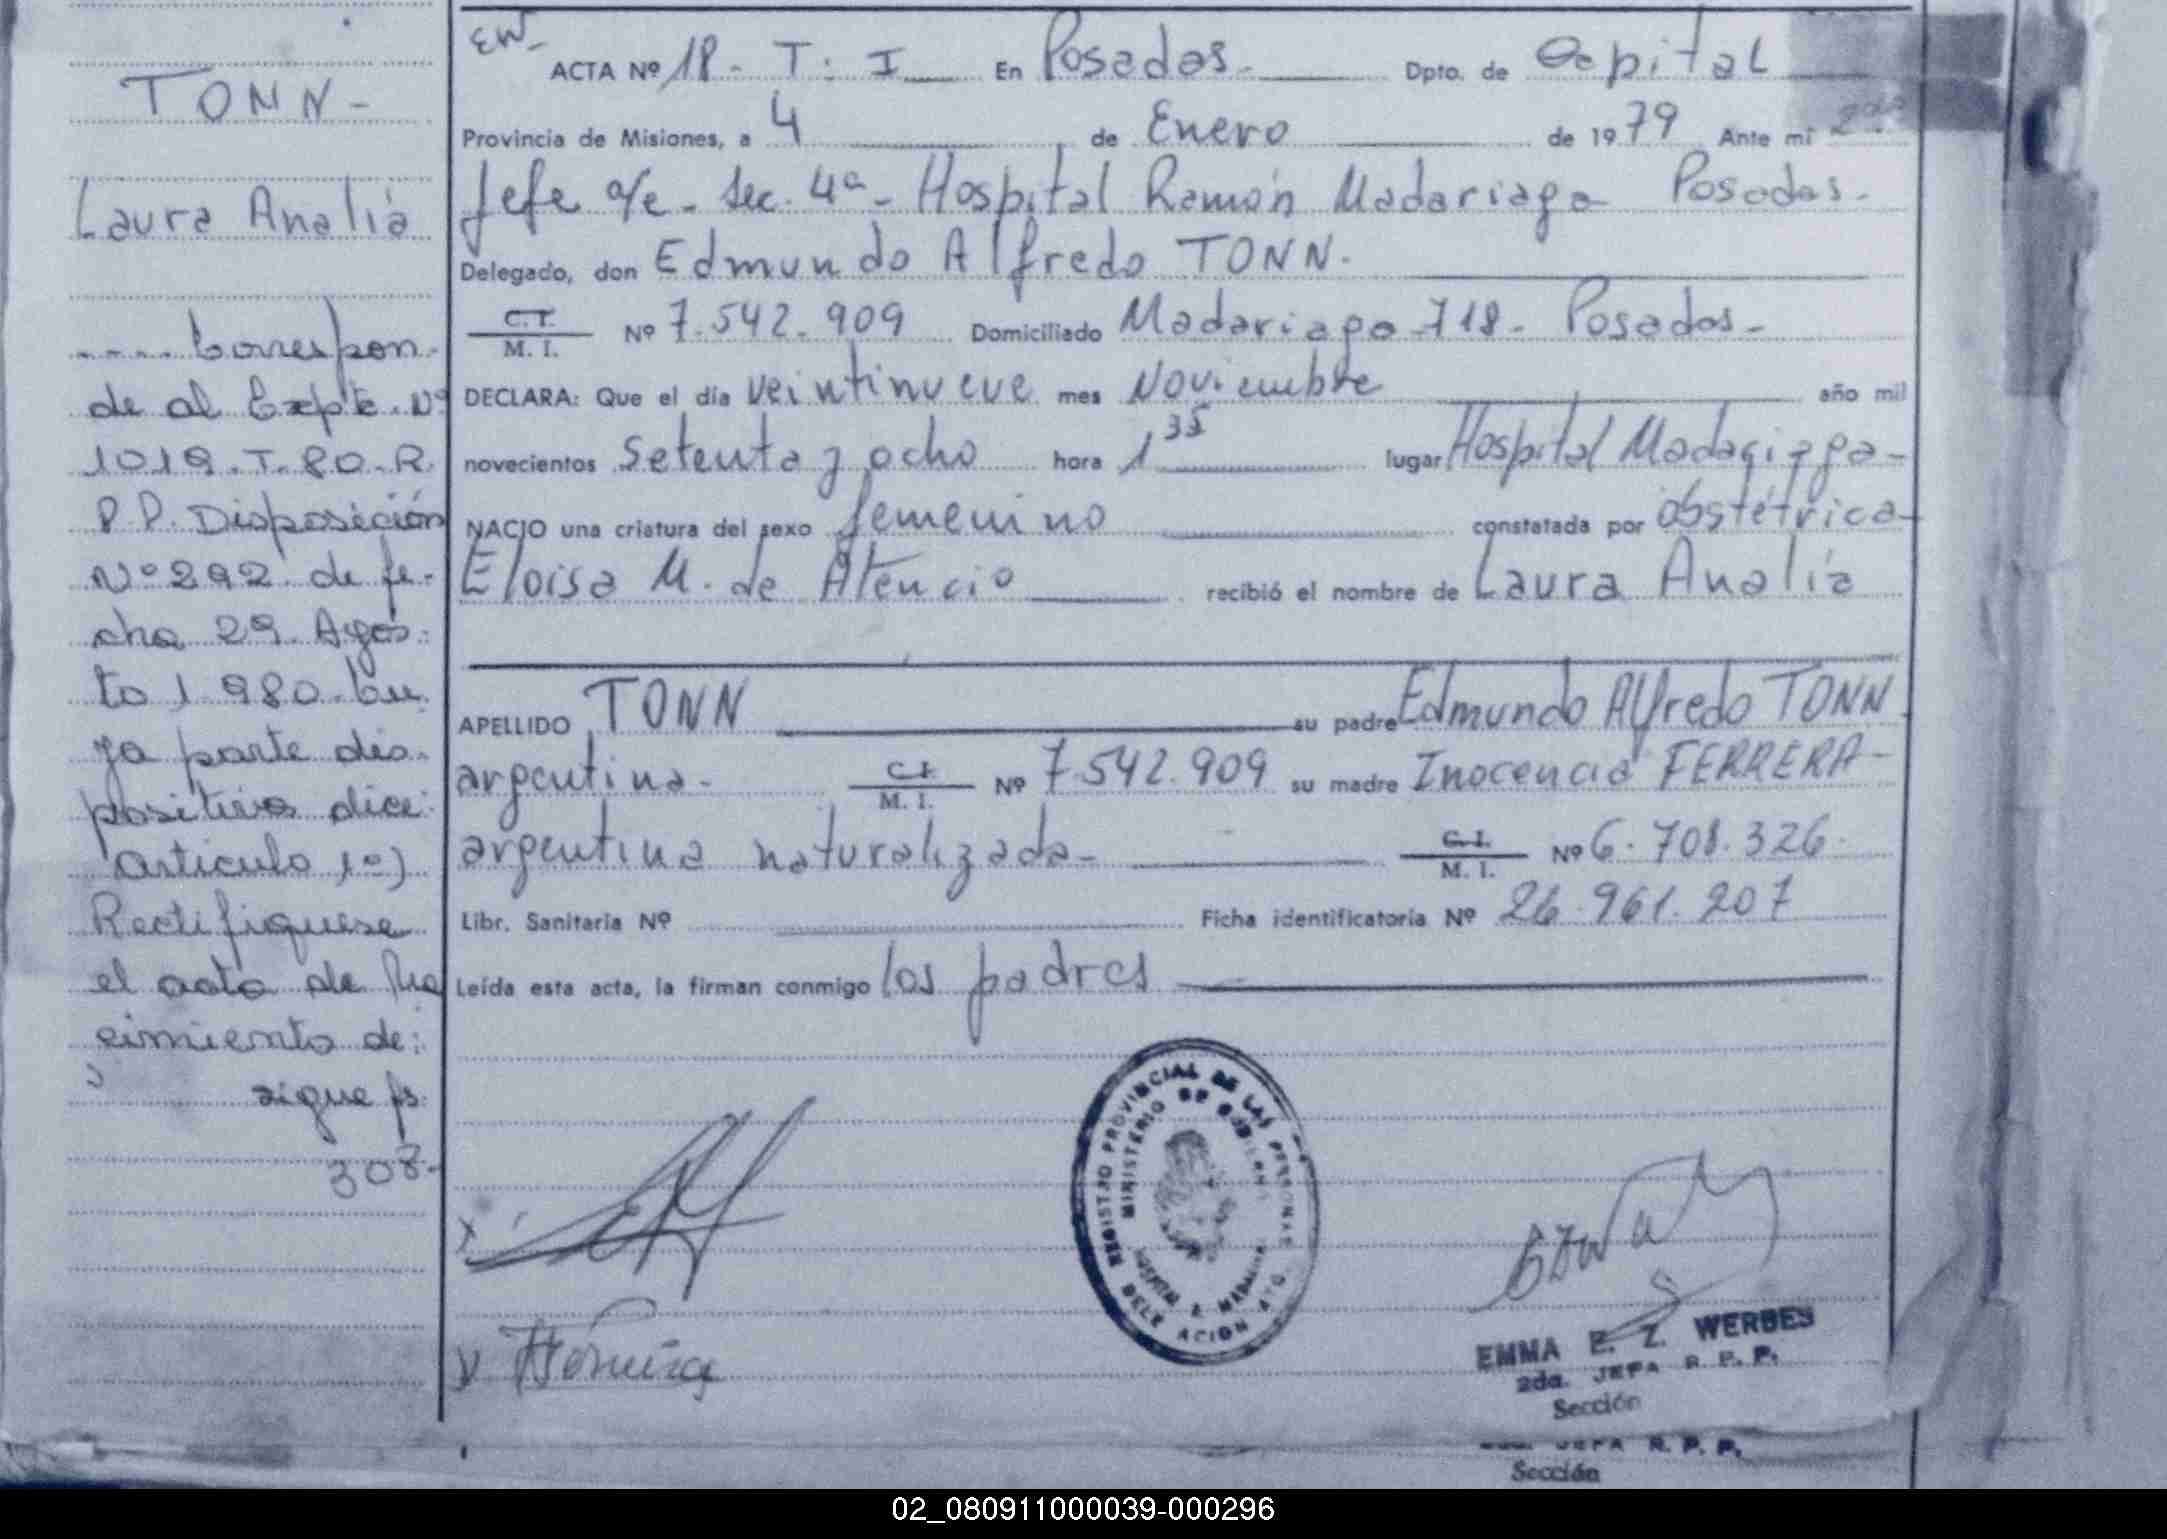 TONN-
Laura Analía
---- Correspon-
de al Expte. Nº
1019.T.80.R.
P.P. Disposición
Nº 292 de fe-
cha 29. Agos-
to 1.980. Cu-
ya parte dis-
positiva dice:
Artículo 1º)
Rectifiquese
el acta de Na
cimiento de:
sigue fs.
308-
EW-
ACTA Nº 18 - T: I En Posadas - Dpto. de Capital
Provincia de Misiones, a 4 de Enero de 1979 Ante mi 2da
Jefe a/c - Sec. 4ª - Hospital Ramón Madariaga Posadas -
Delegado, don Edmundo Alfredo TONN.
C.I.
M. I. Nº 7.542.909 Domiciliado Madariaga 718 - Posadas -
DECLARA: Que el día veintinueve mes Noviembre año mil
novecientos setenta y ocho hora 1 35 lugar Hospital Madariaga -
NACIO una criatura del sexo femenino constatada por obstétrica
Eloisa M. de Atencio recibió el nombre de Laura Analía
APELLIDO TONN su padre Edmundo Alfredo TONN
argentina - C.I. M. I. Nº 7.542.909 su madre Inocencia FERRERA -
argentina naturalizada - C.I. M. I. Nº 6.708.326
Libr. Sanitaria Nº Ficha identificatoria Nº 26.961.207
Leída esta acta, la firman conmigo los padres
REGISTRO PROVINCIAL DE LAS PERSONAS
MINISTERIO DE GOBIERNO
HOSPITAL R. MADARIAGA
DELEGACION
EMMA E. Z. WERBES
2da. JEFA R. P. P.
Sección
JEFA R. P. P.
Sección
02_080911000039-000296